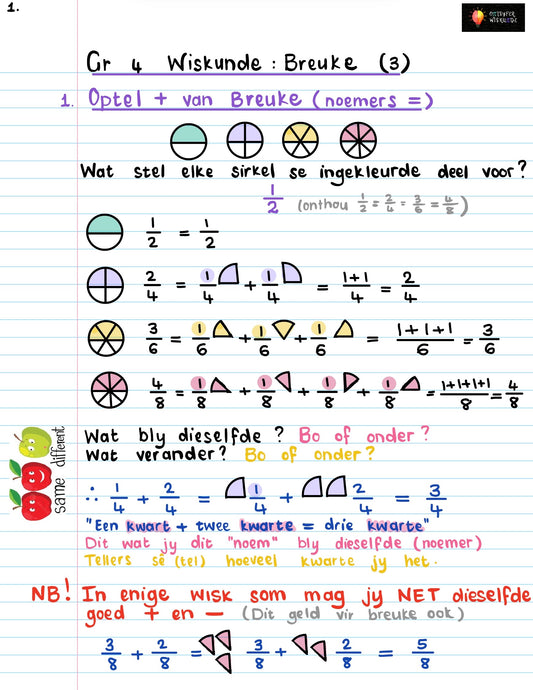 1.
ONTRYFER WISKUNDE
Gr 4 Wiskunde : Breuke (3)
1. Optel + van Breuke (noemers =)
Wat stel elke sirkel se ingekleurde deel voor?
1/2 (onthou 1/2 = 2/4 = 3/6 = 4/8)
1/2 = 1/2
2/4 = 1/4 + 1/4 = 1+1/4 = 2/4
3/6 = 1/6 + 1/6 + 1/6 = 1+1+1/6 = 3/6
4/8 = 1/8 + 1/8 + 1/8 + 1/8 = 1+1+1+1/8 = 4/8
same different
Wat bly dieselfde ? Bo of onder ?
Wat verander? Bo of onder?
∴ 1/4 + 2/4 = 1/4 + 2/4 = 3/4
"Een kwart + twee kwarte = drie kwarte"
Dit wat jy dit "noem" bly dieselfde (noemer)
Tellers sê (tel) hoeveel kwarte jy het.
NB! In enige WISK som mag jy NET dieselfde
goed + en — (Dit geld vir breuke ook)
3/8 + 2/8 = 3/8 + 2/8 = 5/8